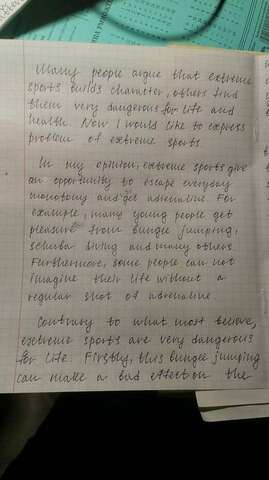 Many people argue that extreme
sports builds character, others find
them very dangerous for life and
health. Now I would like to express
problem of extreme sports.
In my opinion, extreme sports give
an opportunity to escape everyday
monotomy and get adrenaline. For
example, many young people get
pleasure from bungee jumping,
schuba diving and many others.
Furthermore, some people can not
imagine their life without a
regular shot of adrenaline.
Contrary to what most believe,
extreme sports are very dangerous
for life. Firstly, this bungee jumping
can make a bad effect on the